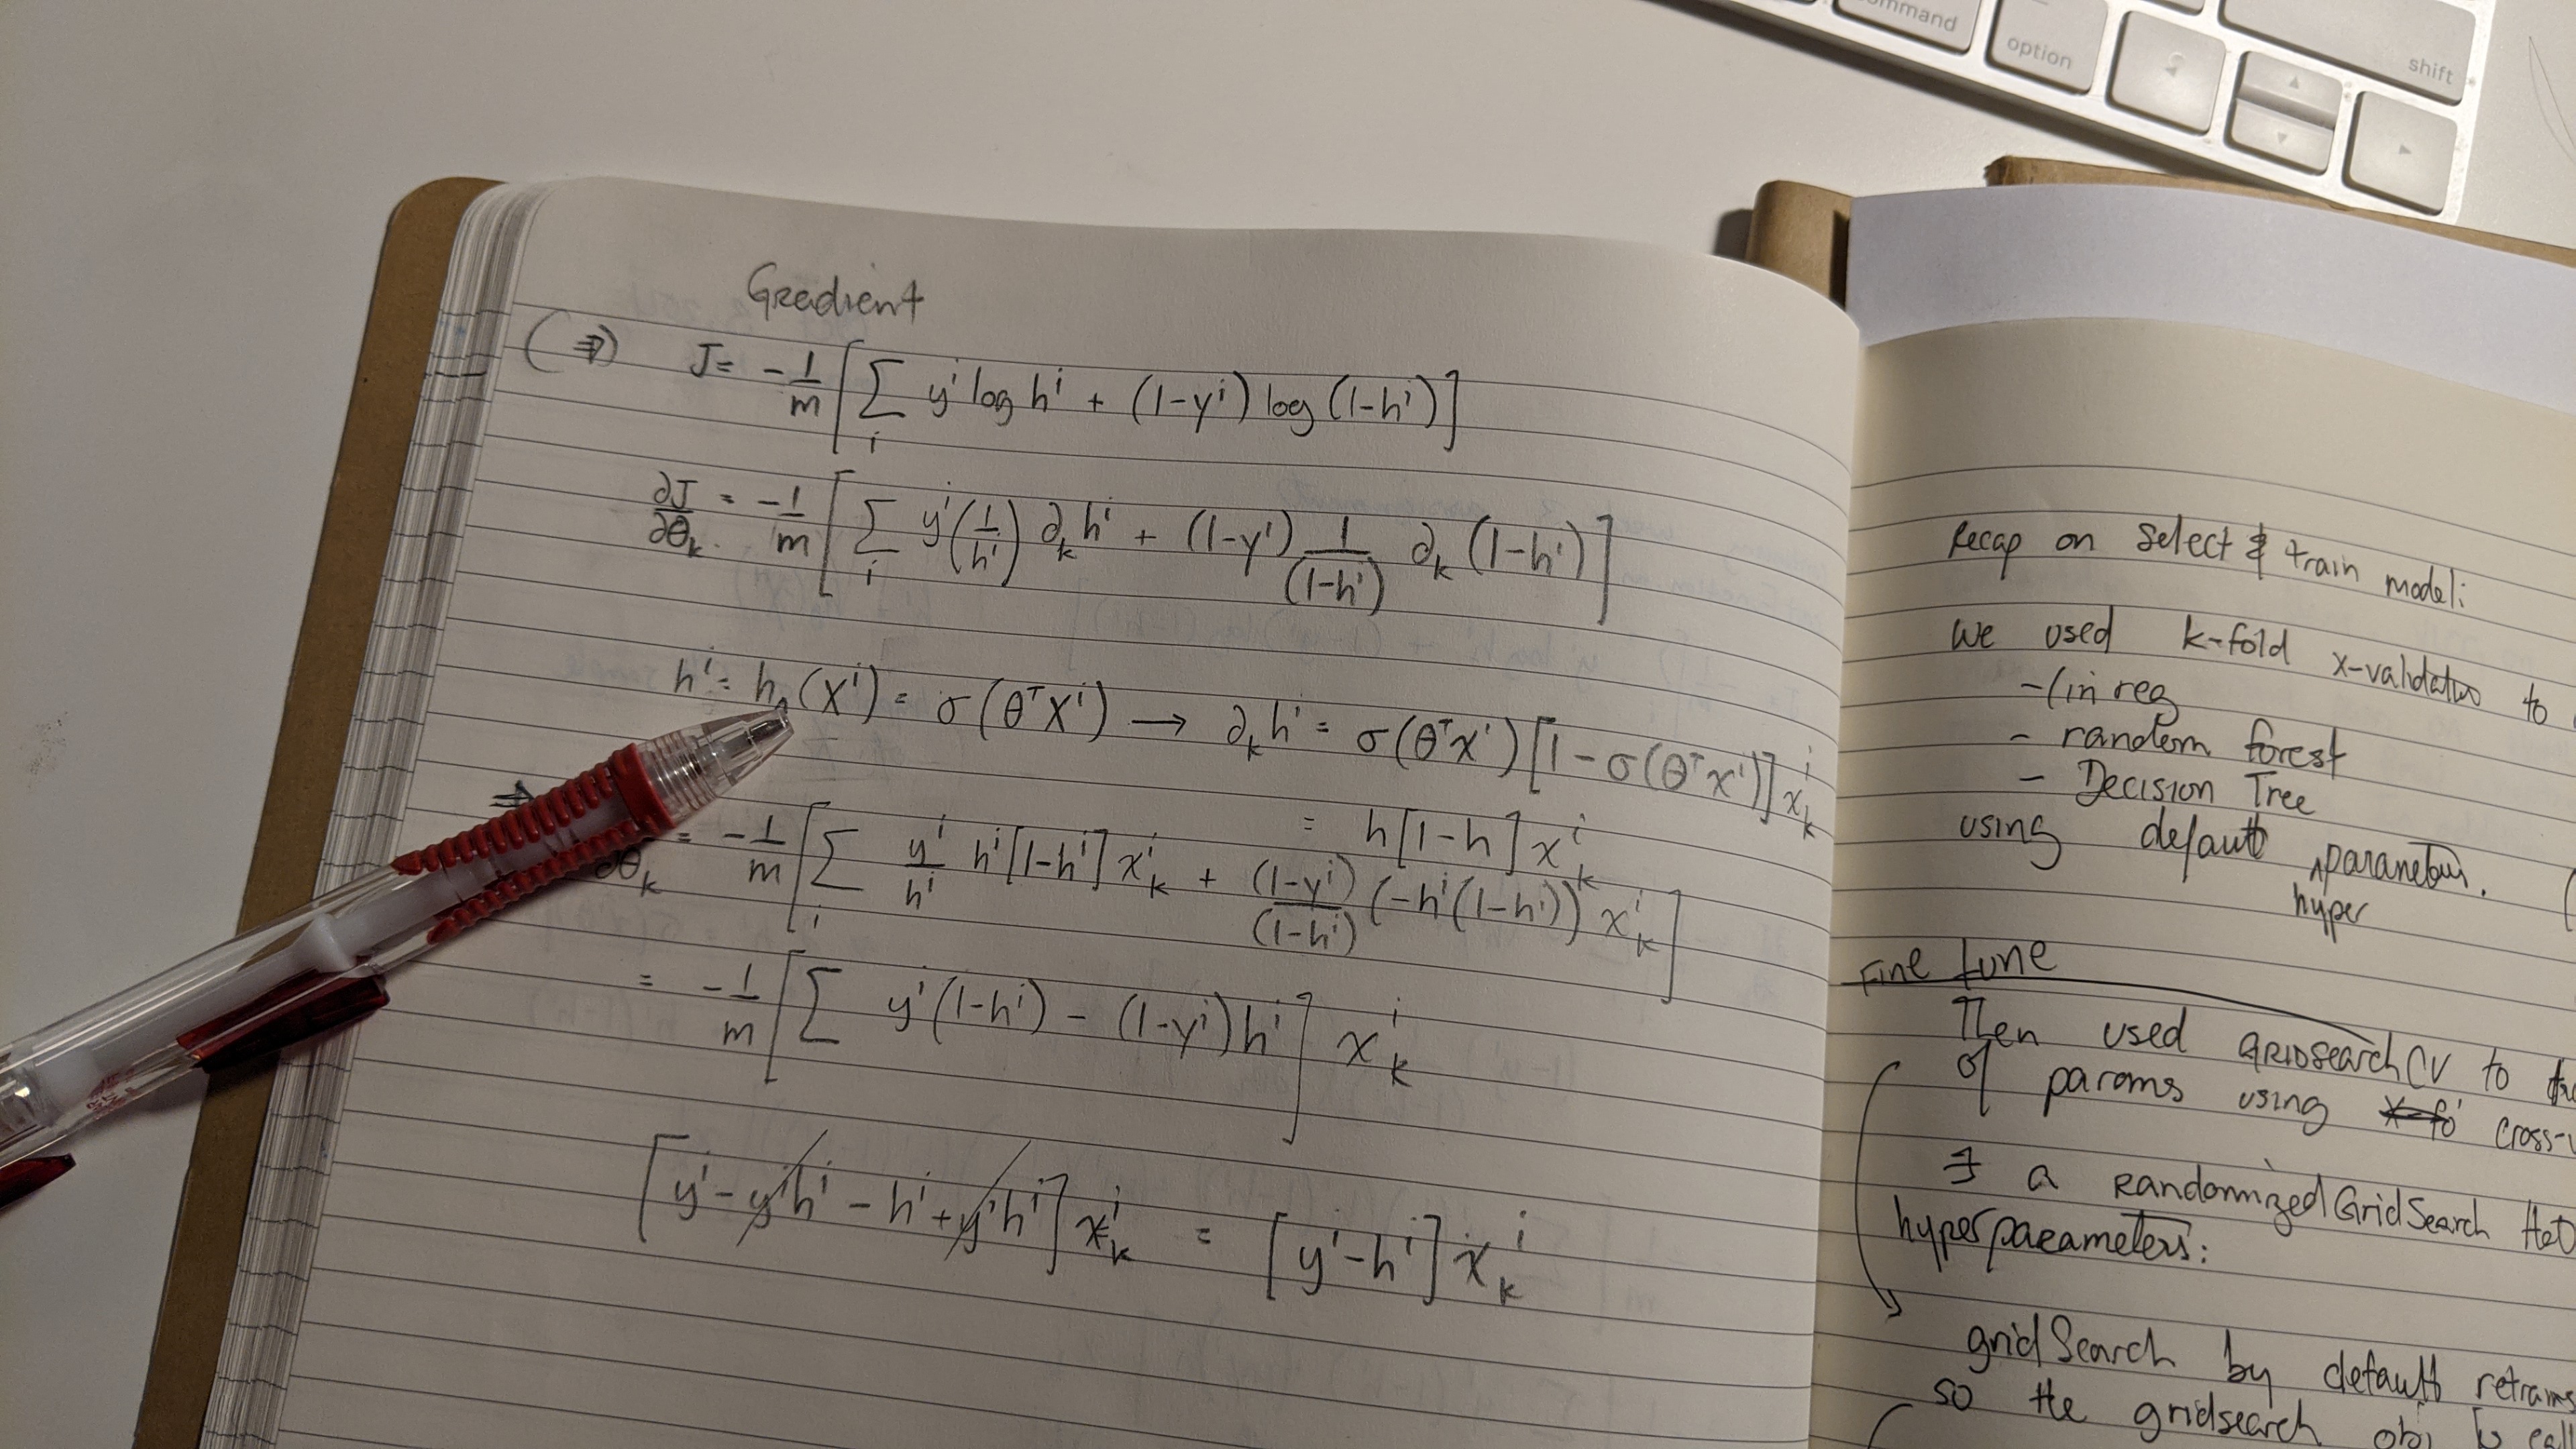 command
option
shift
Gradient
(⇒) J = -1/m [ Σ_i y^i log h^i + (1-y^i) log (1-h^i) ]
∂J/∂θ_k = -1/m [ Σ_i y^i (1/h^i) ∂_k h^i + (1-y^i) 1/(1-h^i) ∂_k (1-h^i) ]
h^i = h (x^i) = σ(θ^T x^i) → ∂_k h^i = σ(θ^T x^i) [1 - σ(θ^T x^i)] x_k^i
= h[1-h] x_k^i
⇒ ∂θ_k = -1/m [ Σ_i y^i/h^i h^i [1-h^i] x_k^i + (1-y^i)/(1-h^i) (-h^i(1-h^i)) x_k^i ]
= -1/m [ Σ y^i (1-h^i) - (1-y^i) h^i ] x_k^i
[ y^i - y^i h^i - h^i + y^i h^i ] x_k^i = [ y^i - h^i ] x_k^i
Recap on Select & train model:
We used k-fold x-validation to
- lin reg
- random forest
- Decision Tree
using default hyper parameters. (
Fine tune
Then used GRIDSearchCV to
of params using cross-v
a RandomizedGridSearch
hyperparameters:
gridSearch by default retrains
so the gridsearch obj